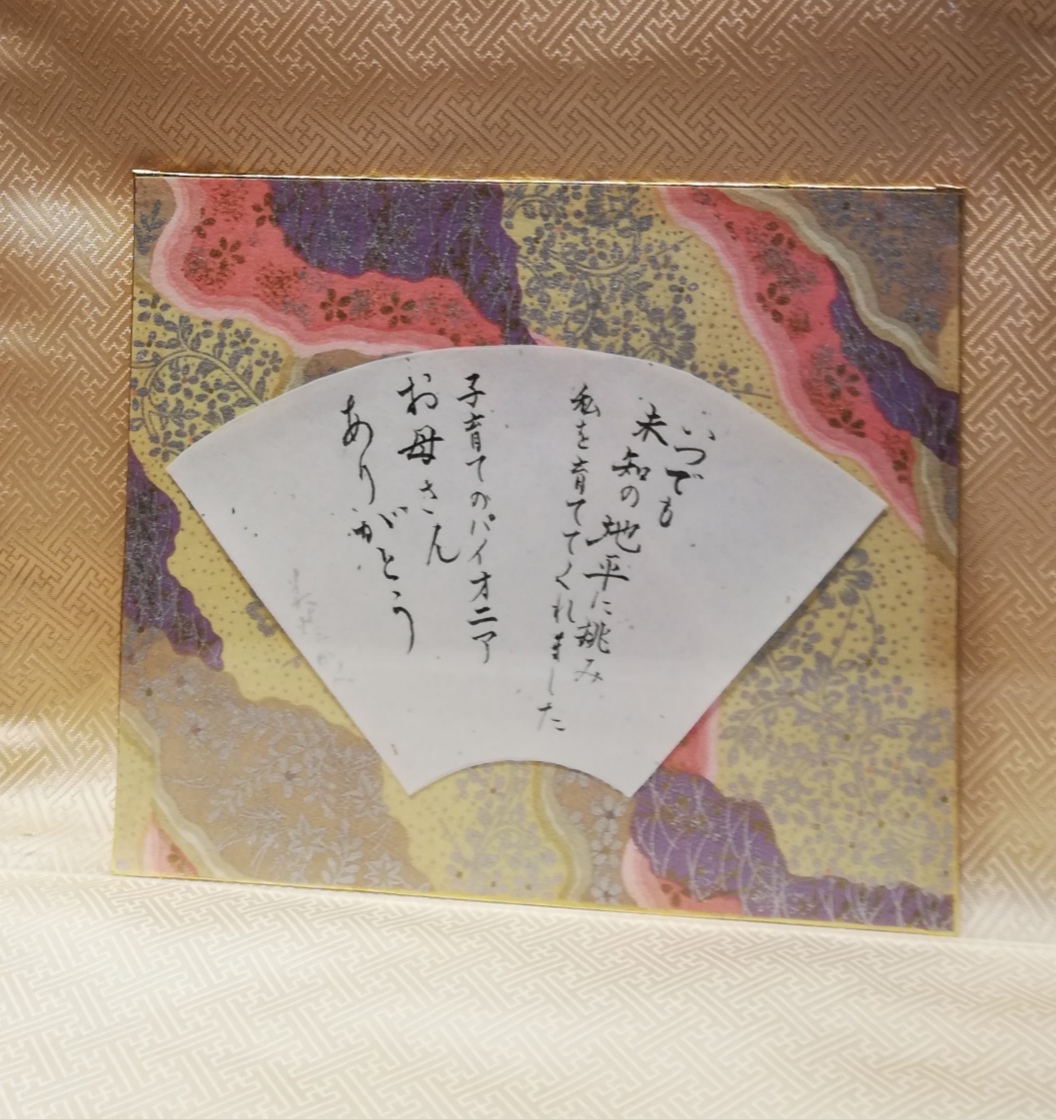 いつでも
未知の地平に挑み
私を育ててくれました
子育てのパイオニア
お母さん
ありがとう